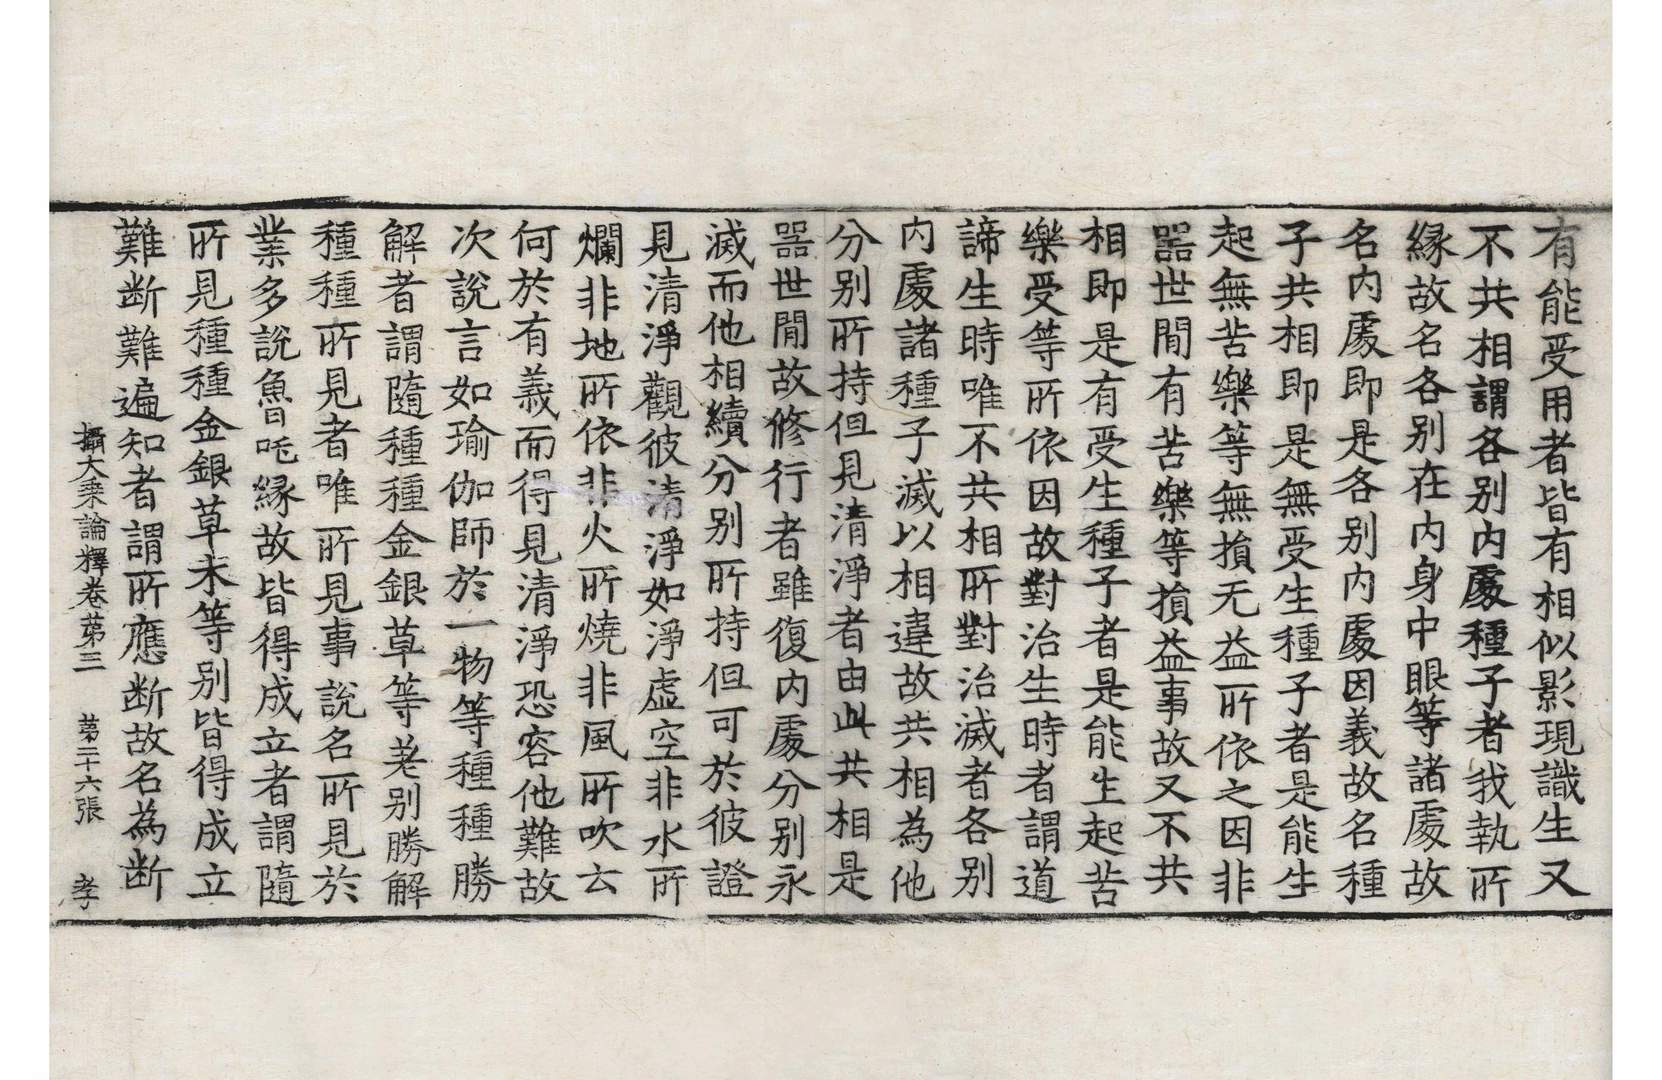 有能受用者皆有相似影現識生又
不共相謂各別內處種子者我執所
緣故名各別在內身中眼等諸處故
名內處即是各別內處因義故名種
子共相即是無受生種子者是能生
起無苦樂等無損无益所依之因非
器世間有苦樂等損益事故又不共
相即是有受生種子者是能生起苦
樂受等所依因故對治生時者謂道
諦生時唯不共相所對治滅者各別
內處諸種子滅以相違故共相為他
分別所持但見清淨者由此共相是
器世間故修行者雖復內處分別永
滅而他相續分別所持但可於彼證
見清淨觀彼清淨如淨虛空非水所
爛非地所依非火所燒非風所吹云
何於有義而得見清淨恐容他難故
次說言如瑜伽師於一物等種種勝
解者謂隨種種金銀草等差別勝解
種種所見者唯所見事說名所見於
業多說魯吒緣故皆得成立者謂隨
所見種種金銀草末等別皆得成立
難斷難遍知者謂所應斷故名為斷
攝大乘論釋卷第三 第二十六張 孝